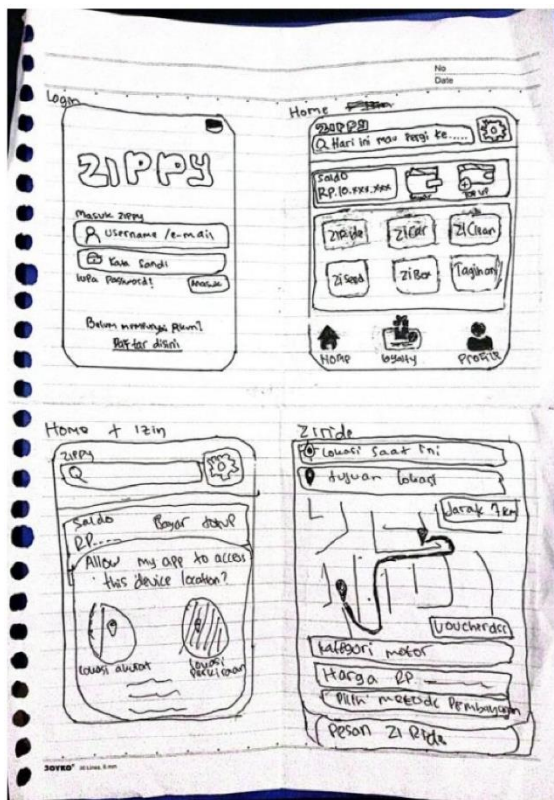 No
Date
Login
ZIPPY
Masuk Zippy
Username /e-mail
Kata Sandi
lupa Password!
Masuk
Belum mempunyai Akun?
Daftar disini
Home
ZIPPY
Hari ini mau pergi ke.....
Saldo
RP.10.xxx.xxx
TOP UP
ZiRide
ZiCar
ZiClean
ZiSend
ZiBox
Tagihan
Home
loyalty
Profile
Home + izin
Zippy
Saldo
Bayar
RP.....
Allow my app to access
this device location?
lokasi akurat
lokasi
perkiraan
Ziride
Lokasi saat ini
tujuan lokasi
Jarak 7 km
Voucher
Kategori motor
Harga RP.
Pilih metode Pembayaran
Pesan Zi Ride
JOYKO